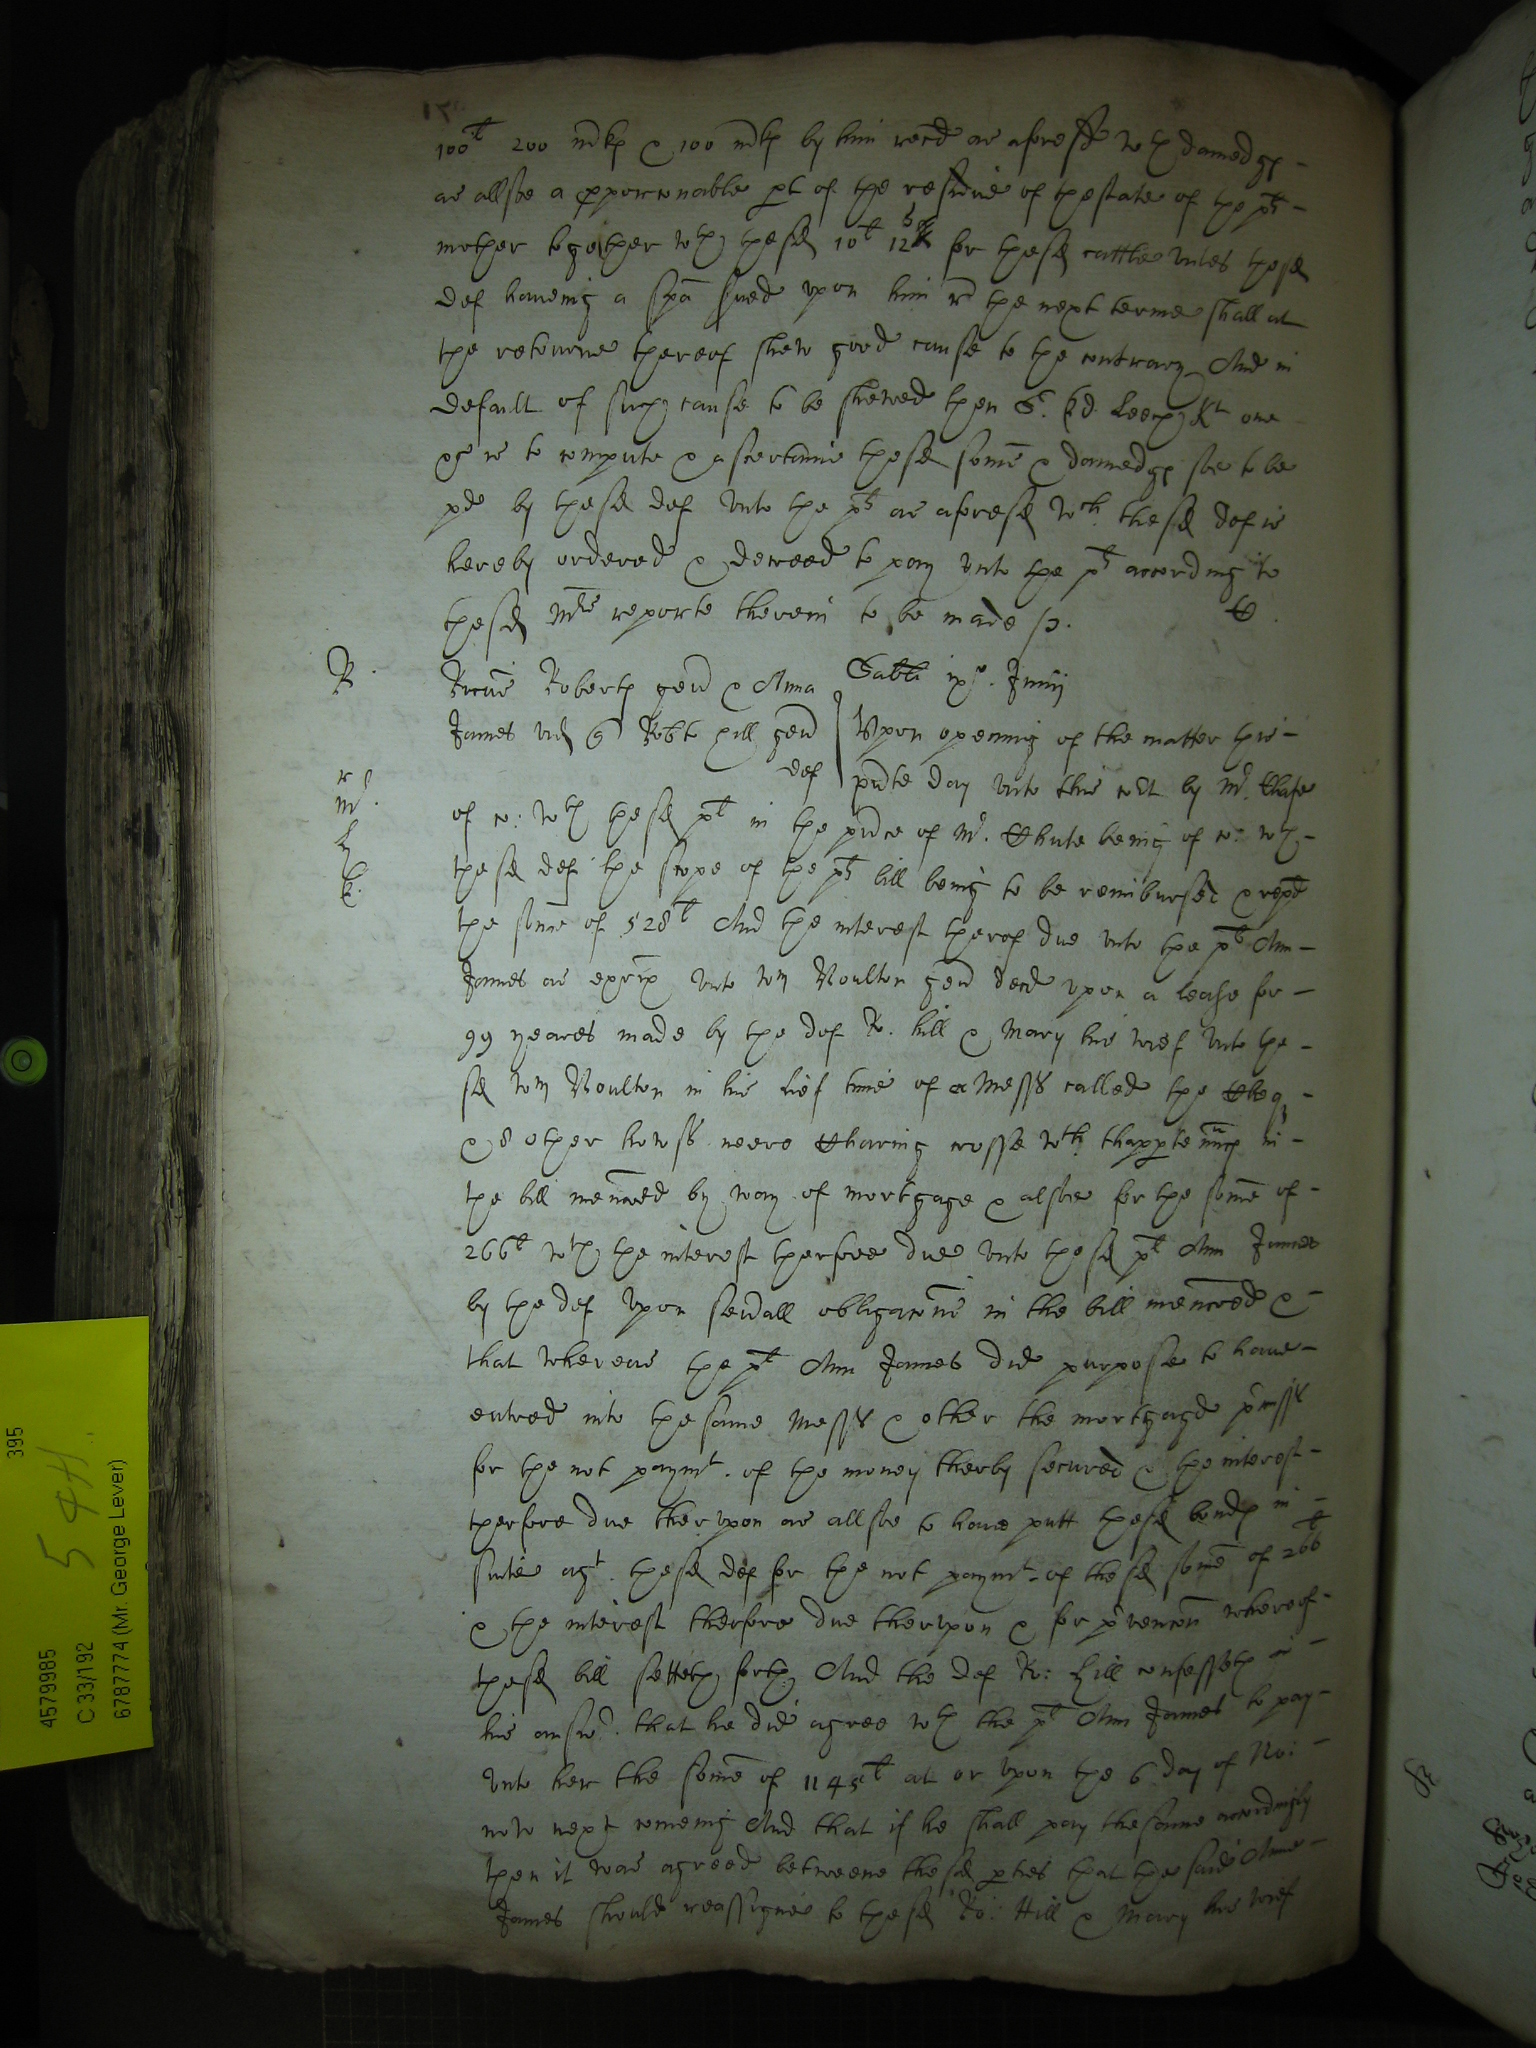 100l 200 mrkes & 100 mrkes by him recd as aforesd wth damedges
as allsoe a pporconable pt of the residue of thestate of the plts
mother together wth thesd 10l 12s for thesd cattle unles thesd
def haveing a spa served upon him the next terme shall at
the retourne thereof shew good cause to the contrary And in
default of such cause to be shewed then Sr. Ed. Leech Kt one
&c is to compute & ascertaine thesd some & damedges soe to be
pd by thesd def unto the plt as aforesd wch thesd def is
hereby ordered & decreed to pay unto the plt according to
thesd Mrs reporte therein to be made
R
Ricus Robertes gen & Anna
James vid q Robt Hill gen
def
Sabti ixo. Junij
Upon opening of the matter this
pnte day unto this cort by Mr. Chase
of co: wth thesd plt in the pnce of Mr. Chute being of co: wth
thesd def the scope of the plts bill being to be reimbursed & repd
the some of 528l And the interest therof due unto the plt Ann
James as exrix unto Wm Moulton gen decd upon a lease for
99 yeares made by the def Ro. Hill & Mary his wief unto the
sd Wm Moulton in his lief time of a Mess called the
& 8 other howses neere Charing crosse wth thappurtennces in
the bill menconed by way of mortgage & alsoe for the some of
266l wth the interest therfore due unto thesd plt Ann James
by the def upon seuall obligacons in the bill menconed &
that whereas the plt Ann James did purpose to have
entred into the same Mess & other the mortgagd pmiss
for the not paymt. of the money therby secured & the interest
therfore due therupon as allsoe to have putt thesd bondes in
suite agt. thesd def for the not paymt of thesd some of 266l
& the interest therfore due therupon & for pvencon whereof
thesd bill setteth forth And the def Ro: Hill confesseth in
his answr. that he did agree wth the plt Ann James to pay
unto her the some of 1145l at or upon the 6 day of No:
now next comeing And that if he shall pay the same accordingly
then it was agreed betweene thesd pties that the said Anne
James should reassigne to thesd Ro: Hill & Mary his wief
395
5 4H
4579985
C 33/192
6787774 (Mr. George Lever)